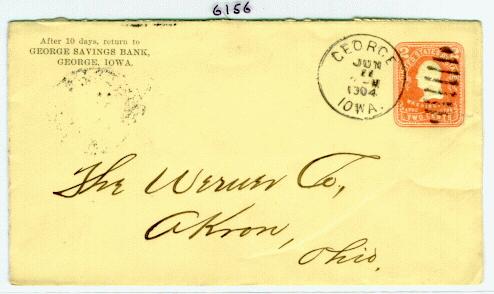 6156
After 10 days, return to
GEORGE SAVINGS BANK,
GEORGE, IOWA.
GEORGE
JUN
1904
IOWA.
TWO CENTS
The Werner Co,
Akron,
Ohio.